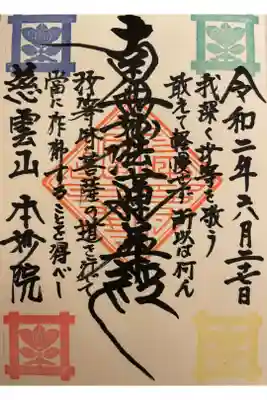 令和二年六月
我深く汝等を敬う
敢えて軽慢せず 所以は何ん
南無妙法蓮華経
汝等皆菩薩の道を行じて
當に作佛することを得べし
慈雲山 本妙院